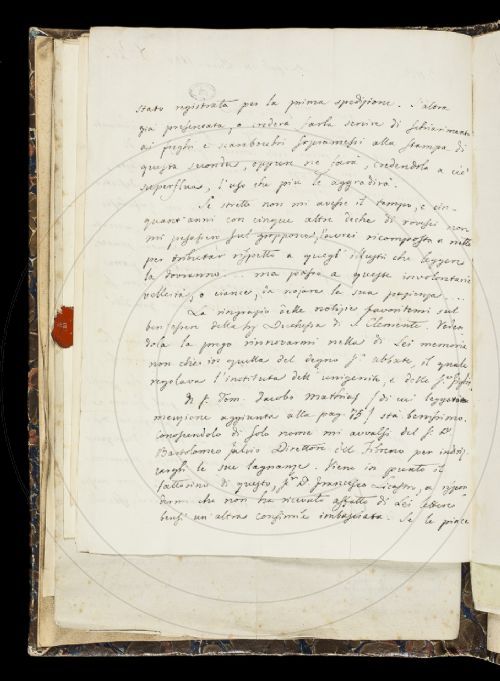 stato registrata per la prima spedizione. Talora
già presentata, o crederà farla servire di schiarimento
ai fregli e scarabocchi frapramessi alla stampa di
questa seconda, oppure ne farà, credendola a ciò
superflua, l'uso che più le aggradirà.
Se stretto non mi avesse il tempo, e cin-
quant'anni con cinque altre deche di rovesci non
mi pesassero sul groppone, l'avrei ricomposta a netto
per tributar rispetto a quegl'illustri che leggere
la dovranno... ma passo a queste involontarie
velleità, o ciance, da nojare la sua pazienza...
La ringrazio delle notizie favoritemi sul
ben essere della Duchessa di S. Clemente. Veden
dola la prego rinnovarmi nella di Lei memoria
non che in quella del degno Sr. abbate, il quale
regolava l'instituta dell' unigenito, e delle figli
Il S. Tom. Jacobo Mathias / di cui leggo
menzione aggiunta alla pag. 75 / stà benissimo.
Conoscendolo di solo nome mi avvalsi del Sr. Dn
Bartolomeo Direttore del per indriz
zargli le sue lagnanze. Viene in punto il
fattorino di questo, Sr. D. Francesco a rispon
dermi che non ha ricevuto affatto di Lei lettere
bensì un'altra consimile imbasciata. Se le piace